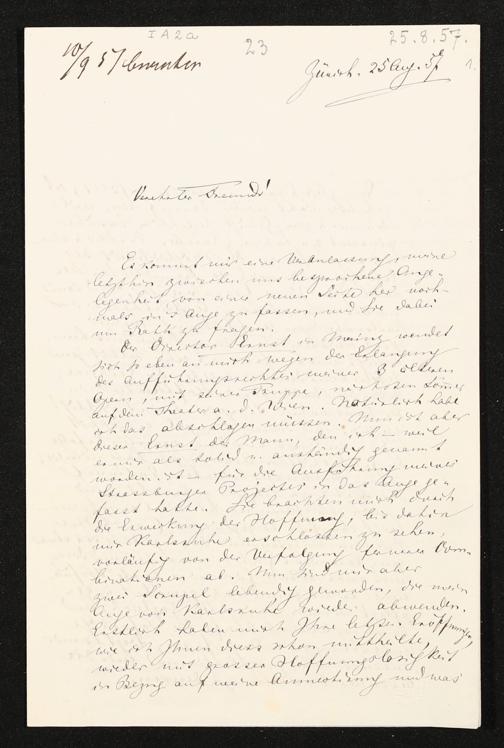 I A 2 a
23
25. 8. 57.
1.
10/9 57
Zürich. 25 Aug. 57
Verehrter Freund!
Es kommt mir eine Veranlassung, meine
letzthin zwischen uns besprochene Ange-
legenheit von einer neuen Seite her noch-
mals in's Auge zu fassen, und Sie dabei
um Rath zu fragen.
Der Director Ernst in Mainz wendet
sich so eben an mich wegen der Erlangung
des Aufführungsrechtes meiner 3 älteren
Opern, mit seiner Truppe, nächsten Sommer
auf dem Theater a. d. Wien. Natürlich habe
ich das abschlagen müssen. Nun ist aber
dieser Ernst der Mann, den ich – weil
er mir als solid u. anständig genannt
worden ist – für die Ausführung meines
Strassburger Projectes in das Auge ge-
fasst hatte. Sie brachten mich durch
die Erweckung der Hoffnung, bis dahin
mir Karlsruhe erschlossen zu sehen,
vorläufig von der Verfolgung fernerer Com-
binationen ab. Nun sind mir aber
zwei Scrupel lebendig geworden, die mein
Auge von Karlsruhe wieder abwenden.
Erstlich haben mich Ihre letzten Eröffnungen,
wie ich Ihnen diess schon mittheilte,
wieder mit grosser Hoffnungslosigkeit
in Bezug auf meine Amnestirung und was